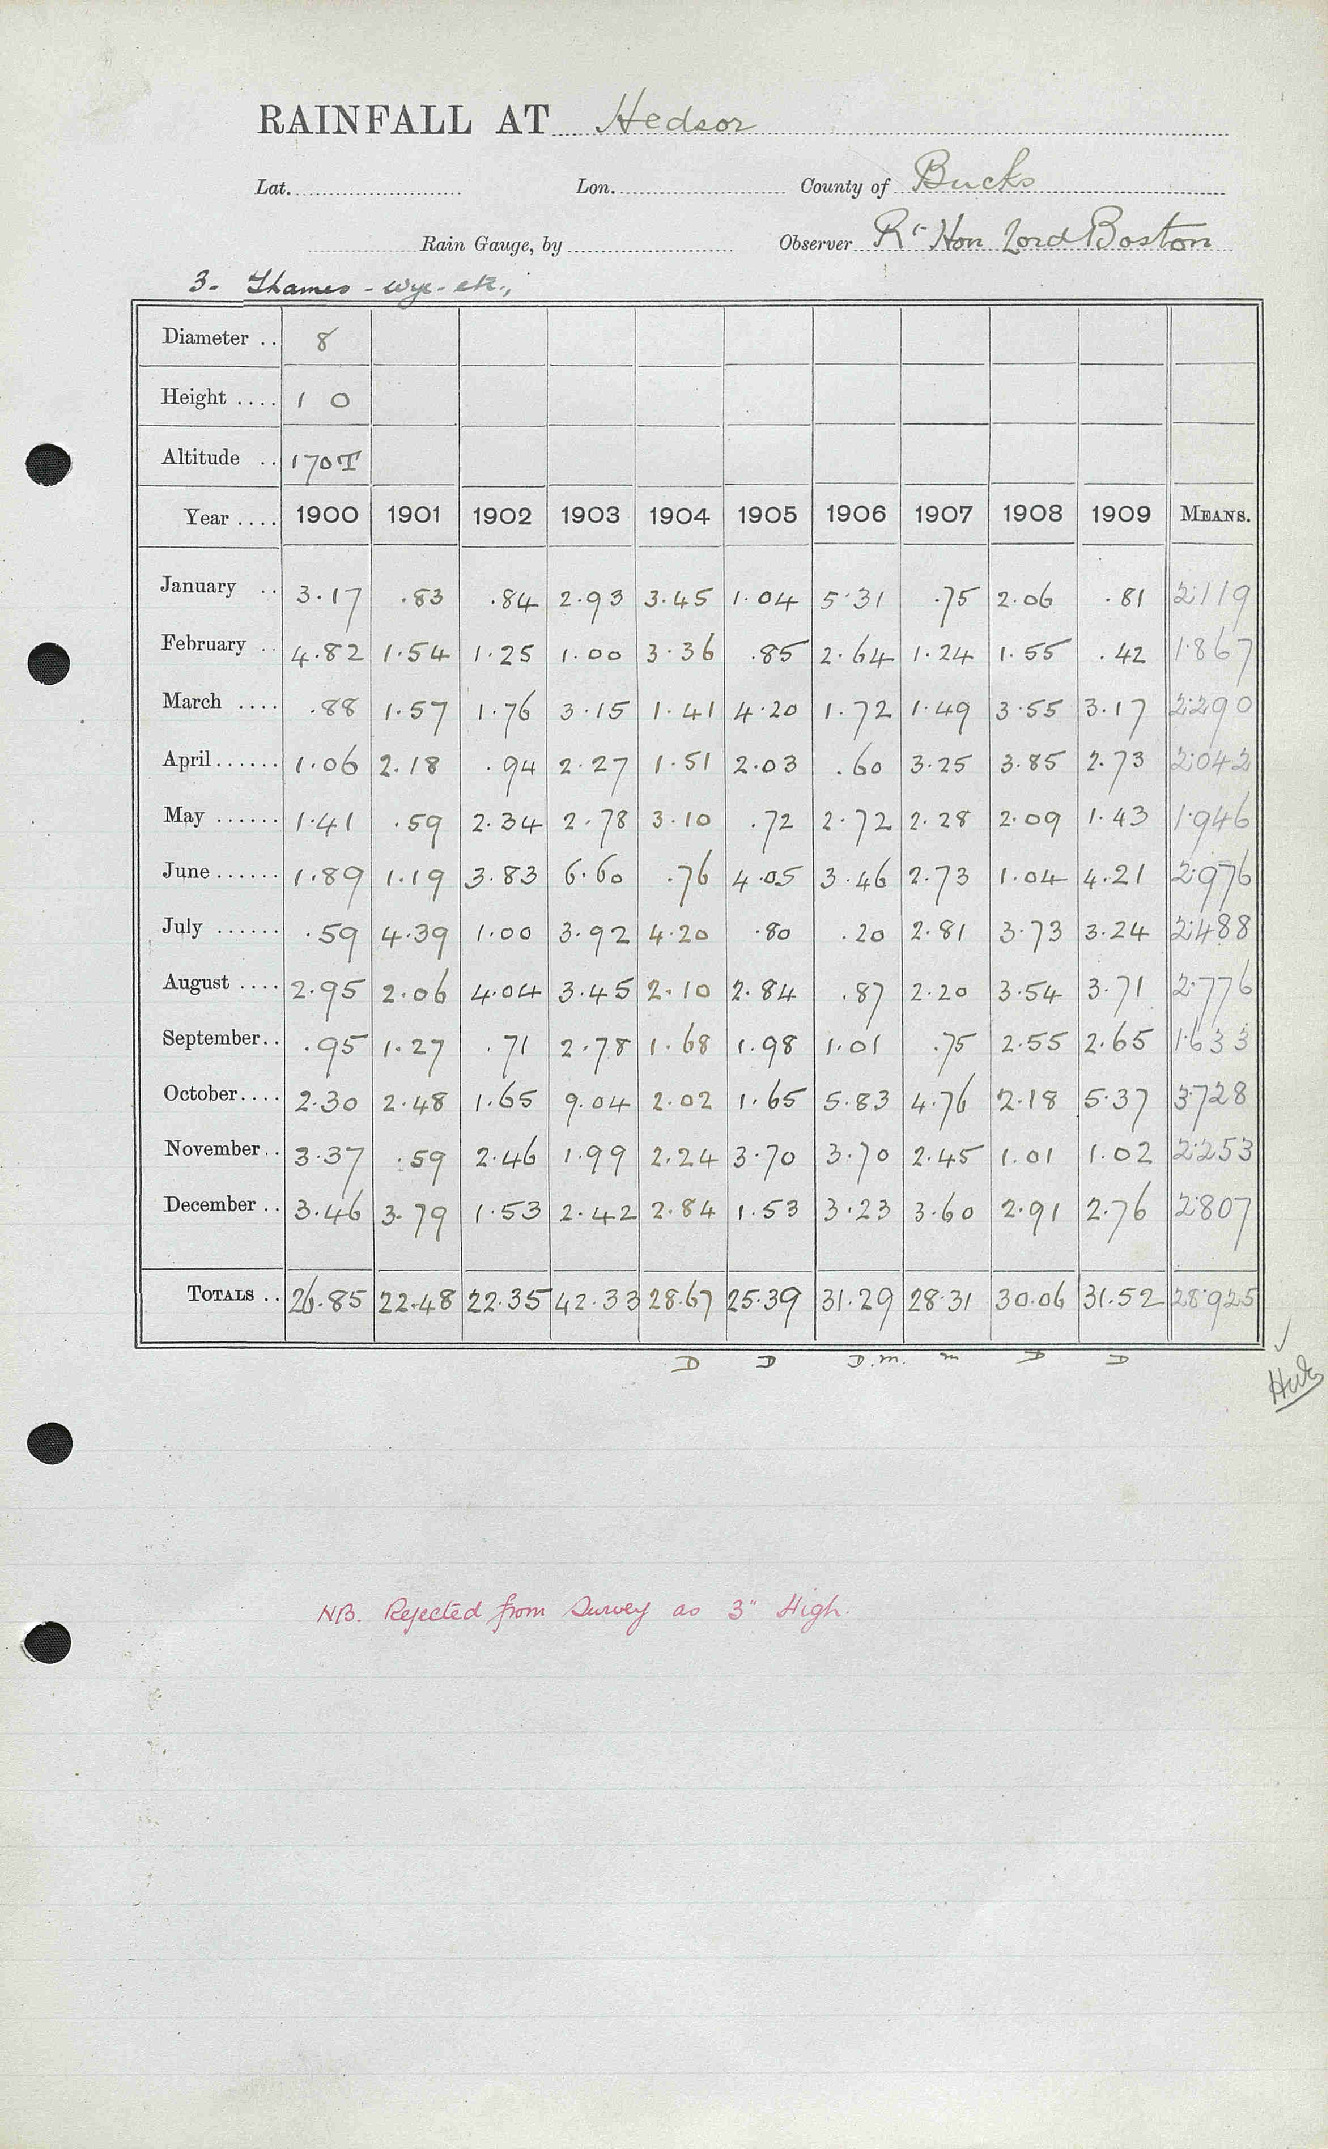 RAINFALL AT Hedsor
Lat. Lon. County of Bucks
Rain Gauge, by Observer Rt Hon Lord Boston
3. Thames - Wye - etc.,
Diameter .. 8
Height .... 1 0
Altitude .. 170T
Year .... 1900 1901 1902 1903 1904 1905 1906 1907 1908 1909 MEANS.
January .. 3.17 .83 .84 2.93 3.45 1.04 5.31 .75 2.06 .81 2.119
February .. 4.82 1.54 1.25 1.00 3.36 .85 2.64 1.24 1.55 .42 1.867
March .... .88 1.57 1.76 3.15 1.41 4.20 1.72 1.49 3.55 3.17 2.290
April...... 1.06 2.18 .94 2.27 1.51 2.03 .60 3.25 3.85 2.73 2.042
May ...... 1.41 .59 2.34 2.78 3.10 .72 2.72 2.28 2.09 1.43 1.946
June...... 1.89 1.19 3.83 6.60 .76 4.05 3.46 2.73 1.04 4.21 2.976
July ...... .59 4.39 1.00 3.92 4.20 .80 .20 2.81 3.73 3.24 2.488
August .... 2.95 2.06 4.04 3.45 2.10 2.84 .87 2.20 3.54 3.71 2.776
September.. .95 1.27 .71 2.78 1.68 1.98 1.01 .75 2.55 2.65 1.633
October.... 2.30 2.48 1.65 9.04 2.02 1.65 5.83 4.76 2.18 5.37 3.728
November.. 3.37 .59 2.46 1.99 2.24 3.70 3.70 2.45 1.01 1.02 2.253
December .. 3.46 3.79 1.53 2.42 2.84 1.53 3.23 3.60 2.91 2.76 2.807
TOTALS .. 26.85 22.48 22.35 42.33 28.67 25.39 31.29 28.31 30.06 31.52 28.925
D D D.m. m D D
NB. Rejected from Survey as 3" High.